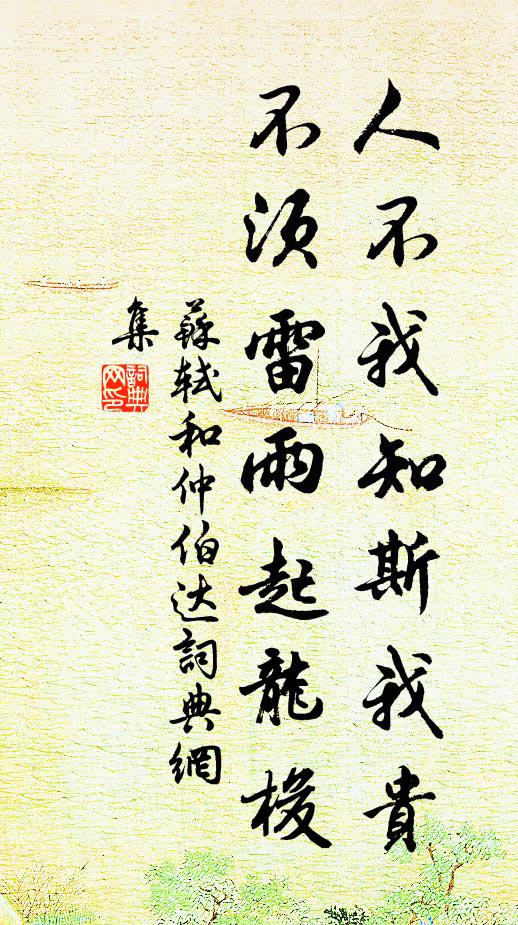 人不我知斯我貴
不須雷雨起龍梭
蘇軾和仲伯达詞典網
集
詞典
网印